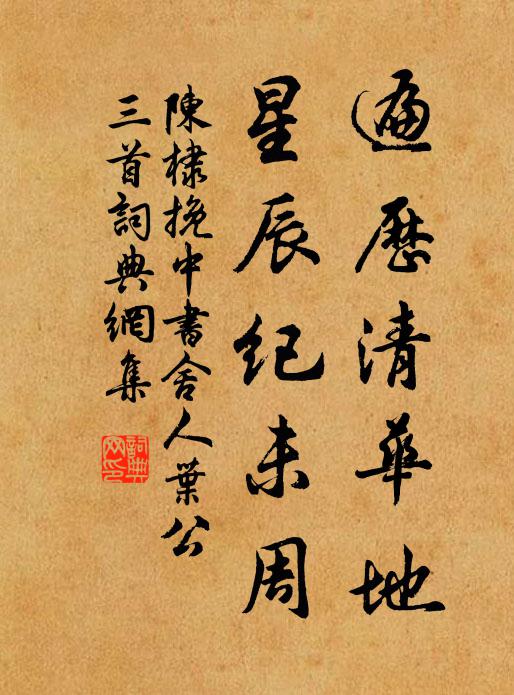 遍歷清華地
星辰紀未周
陳棣挽中書舍人葉公
三首詞典網集
詞典
网印